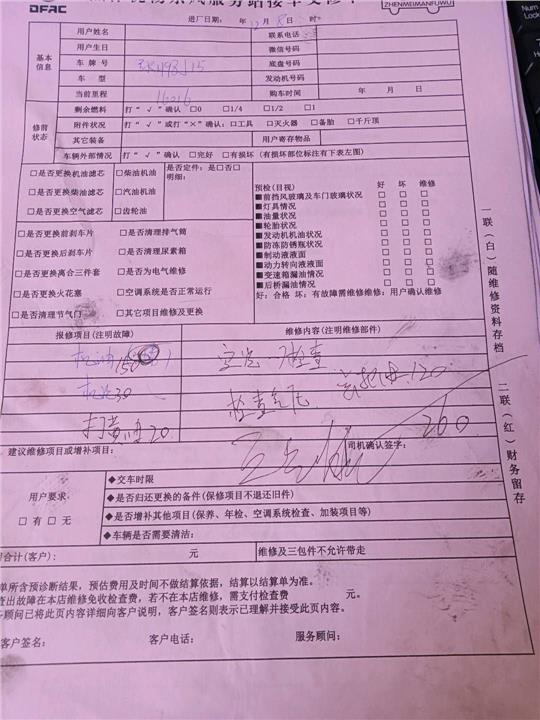 DFAC
服务站接车交修单
ZHENMEIMANFUWU
进厂日期： 年 12 月 8 日 时
基本信息
用户姓名 联系电话
用户生日 微信号码
车牌号 底盘号码
车型 发动机号码
当前里程 购车时间 年 月 日
修前状态
剩余燃料 打“√”确认 □0 □1/4 □1/2 □1
附件状况 打“√”或打“×”确认：□工具 □灭火器 □备胎 □千斤顶
其它装备 用户寄存物品
车辆外部情况 打“√”确认 □完好 □有损坏（有损坏部位标注有下表左图）
□是否更换机油滤芯 □柴油机油
□是否更换柴油滤芯 □汽油机油
□是否更换空气滤芯 □齿轮油
是否定件：是□否□
明细：
□是否更换前刹车片 □是否清理排气筒
□是否更换后刹车片 □是否清理尿素箱
□是否更换离合三件套 □是否为电气维修
□是否更换火花塞 □空调系统是否正常运行
□是否清理节气门 □其它项目维修及更换
预检(目视) 好 坏 维修
■前挡风玻璃及车门玻璃状况 □ □ □
■灯具情况 □ □ □
■油量状况 □ □ □
■轮胎状况 □ □ □
■发动机机油状况 □ □ □
■防冻防锈瓶状况 □ □ □
■制动液液面 □ □ □
■动力转向液液面 □ □ □
■变速箱漏油情况 □ □ □
■后桥漏油情况 □ □ □
好：合格 坏：有故障需维修维修：用户确认维修
报修项目(注明故障) 维修内容(注明维修部件)
机油 150
机滤 30 120
打黄油 20
260
建议维修项目或增补项目： 司机确认签字：
用户要求：
□有 □无
◆交车时限
◆是否归还更换的备件(保修项目不退还旧件)
◆是否增补其他项目(保养、年检、空调系统检查、加装项目等)
◆车辆是否需要清洁：
合计(客户)： 元 维修及三包件不允许带走
单所含预诊断结果，预估费用及时间不做结算依据，结算以结算单为准。
查出故障在本店维修免收检查费，若不在本店维修，需支付检查费 元。
务顾问已将此页内容详细向客户说明，客户签名则表示已理解并接受此页内容。
客户签名： 客户电话： 服务顾问：
一联（白）随维修资料存档
二联（红）财务留存